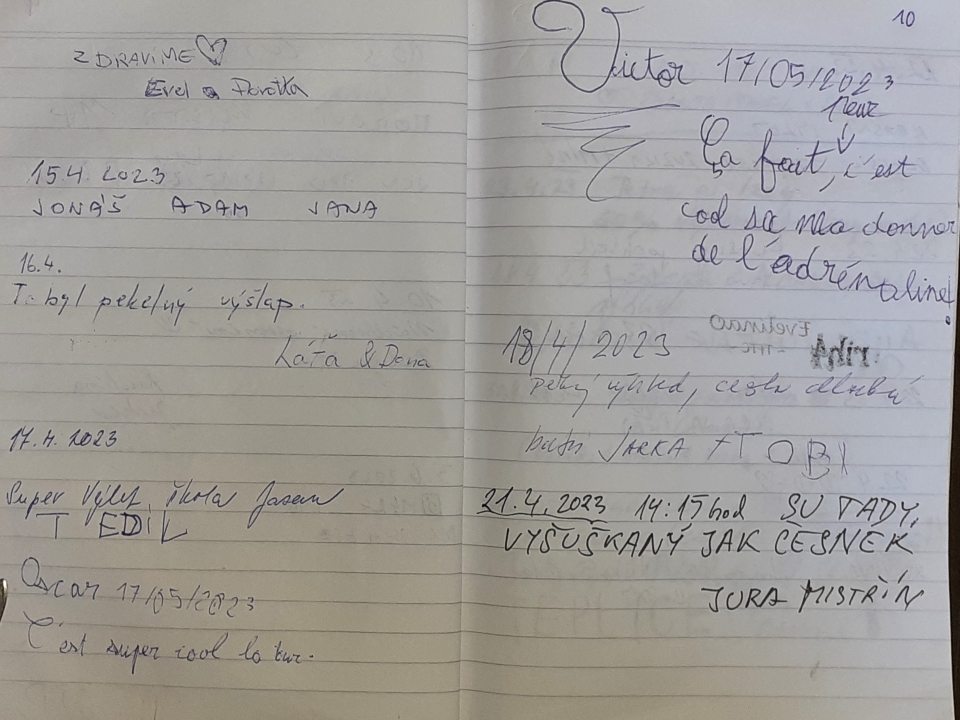 ZDRAVIME
Evel a Dorotka
15.4. 2023
JONÁŠ ADAM JANA
16.4.
To byl pekelný výšlap.
Káťa & Dana
17.4. 2023
Super Výlet, škola
T EDIL
Oscar 17/05/2023
C'est super cool la
10
Victor 17/05/2023
peur
Ça fait, c'est
cool sa ma donner
de l'adrénaline!
Evelinao
18/4/2023
Pěkný výhled, cesta
JARKA + TOBI
21.4.2023 14:15 hod SU TADY,
VYŠUŠKANÝ JAK ČESNEK
JURA MISTŘÍN